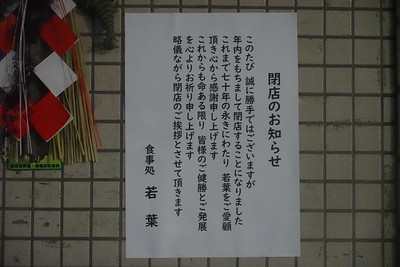 閉店のお知らせ
このたび 誠に勝手ではございますが
年内をもちまして閉店することになりました
これまで七十年の永きにわたり 若葉をご愛顧
頂き心から感謝申し上げます
これからも命ある限り 皆様のご健勝とご発展
を心よりお祈り申し上げます
略儀ながら閉店のご挨拶とさせて頂きます
食事処 若葉